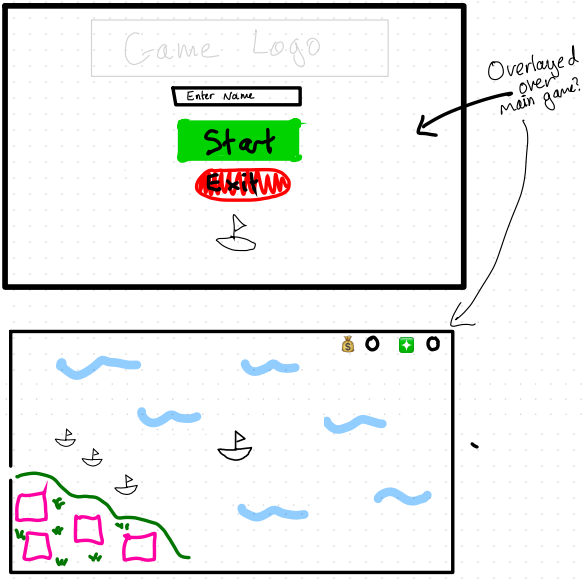 Game Logo
Enter Name
Start
Exit
Overlayed
over
main game?
$ 0 0